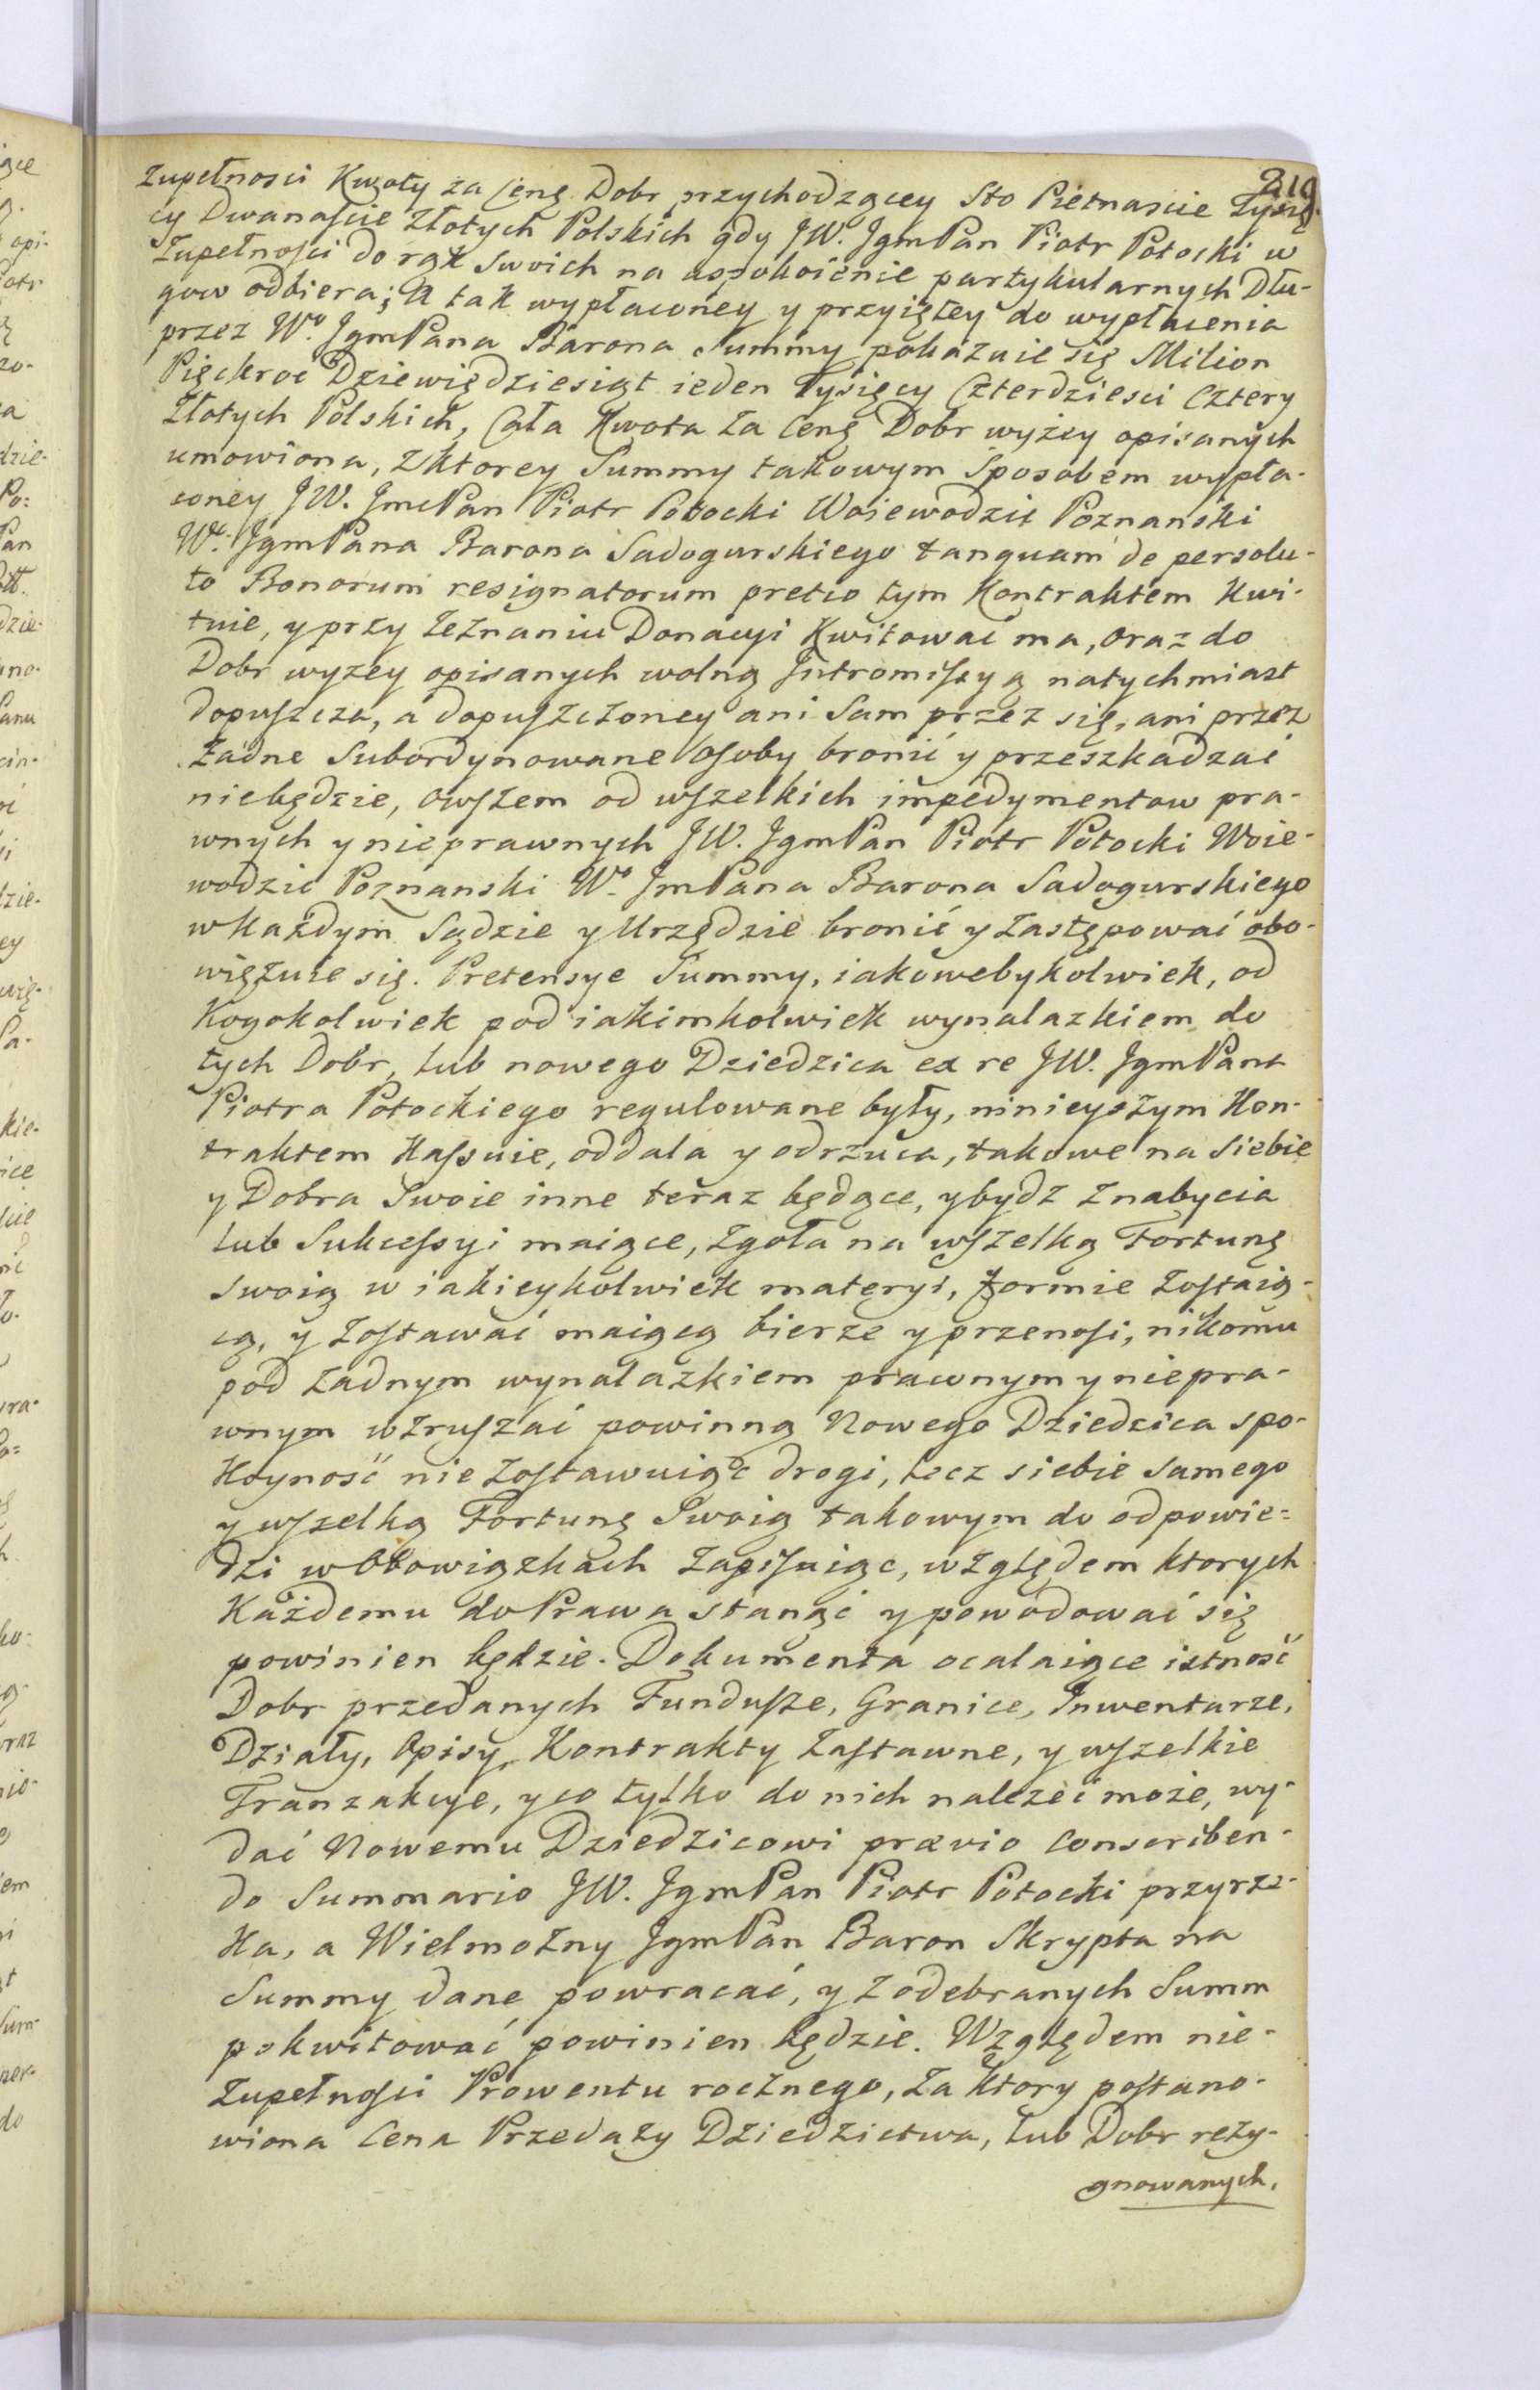 219
Zupełnosci Kwoty za Cenę Dobr przychodzącey Sto Pietnascie Tysię-
cy Dwanaście Złotych Polskich gdy JW. JgmPan Piotr Potocki w
Zupełności do rąk Swoich na uspokoienie partykularnych Dłu-
gow odbiera; A tak wypłaconey y przyiętey do wypłacenia
przez Wo. JgmPana Barona Summy pokazuie się Milion
Pięckroc Dziewiędziesiąt ieden Tysięcy Czterdziesci Cztery
Złotych Polskich, Cała Kwota za Cenę Dobr wyżey opisanych
umowiona, Zktorey Summy takowym Sposobem wypła-
coney JW. JmcPan Piotr Potocki Woiewodzic Poznanski
Wo. JgmPana Barona Sadogurskiego tanquam de persolu-
to Bonorum resignatorum pretio tym Kontraktem Kwi-
tuie, y przy Zeznaniu Donacyi Kwitować ma, oraz do
Dobr wyzey opisanych wolną Jntromissyą natychmiast
dopuszcza, a dopuszczoney ani Sam przez się, ani przez
Żadne Subordynowane osoby bronić y przeszkadzać
niebędzie, owszem od wszelkich impedymentow pra-
wnych y nieprawnych JW. JgmPan Piotr Potocki Woie-
wodzic Poznanski Wo. JmPana Barona Sadogurskiego
wKażdym Sądzie y Urzędzie bronić y Zastępować obo-
więzuie się. Pretensye Summy, iakowebykolwiek, od
Kogokolwiek pod iakimkolwiek wynalazkiem do
tych Dobr, lub nowego Dziedzica ex re JW. JgmPana
Piotra Potockiego regulowane były, ninieyszym Kon-
traktem Kassuie, oddala y odrzuca, takowe na Siebie
y Dobra Swoie inne teraz będące, y bydz Znabycia
lub Sukcessyi maiące, Zgoła na wszelką Fortunę
Swoią w iakieykolwiek materyi, formie Zostaią-
cą, y Zostawać maiącą bierze y przenosi, nikomu
pod Żadnym wynalazkiem prawnym y niepra-
wnym wzruszać powinną Nowego Dziedzica spo-
Koyność nie Zostawuiąc drogi, lecz siebie samego
y wszelką Fortunę Swoią takowym do odpowie=
dzi wObowiązkach Zapisuiąc, względem ktorych
Każdemu do Prawa stanąć y powodować się
powinien będzie. Dokumenta ocalaiące istność
Dobr przedanych Fundusze, Granice, Jnwentarze,
Działy, Opisy, Kontrakty Zastawne, y wszelkie
Tranzakcye, y co tylko do nich nalezeć może, wy-
dać Nowemu Dziedzicowi prævio Conscriben-
do Summario JW. JgmPan Piotr Potocki przyrze-
Ka, a Wielmożny JgmPan Baron Skrypta na
Summy dane powracać, y Zodebranych Summ
pokwitować powinien będzie. Względem nie-
Zupełności Prowentu rocznego, Za ktory postano-
wiona Cena Przedaży Dziedzictwa, lub Dobr rezy-
gnowanych.